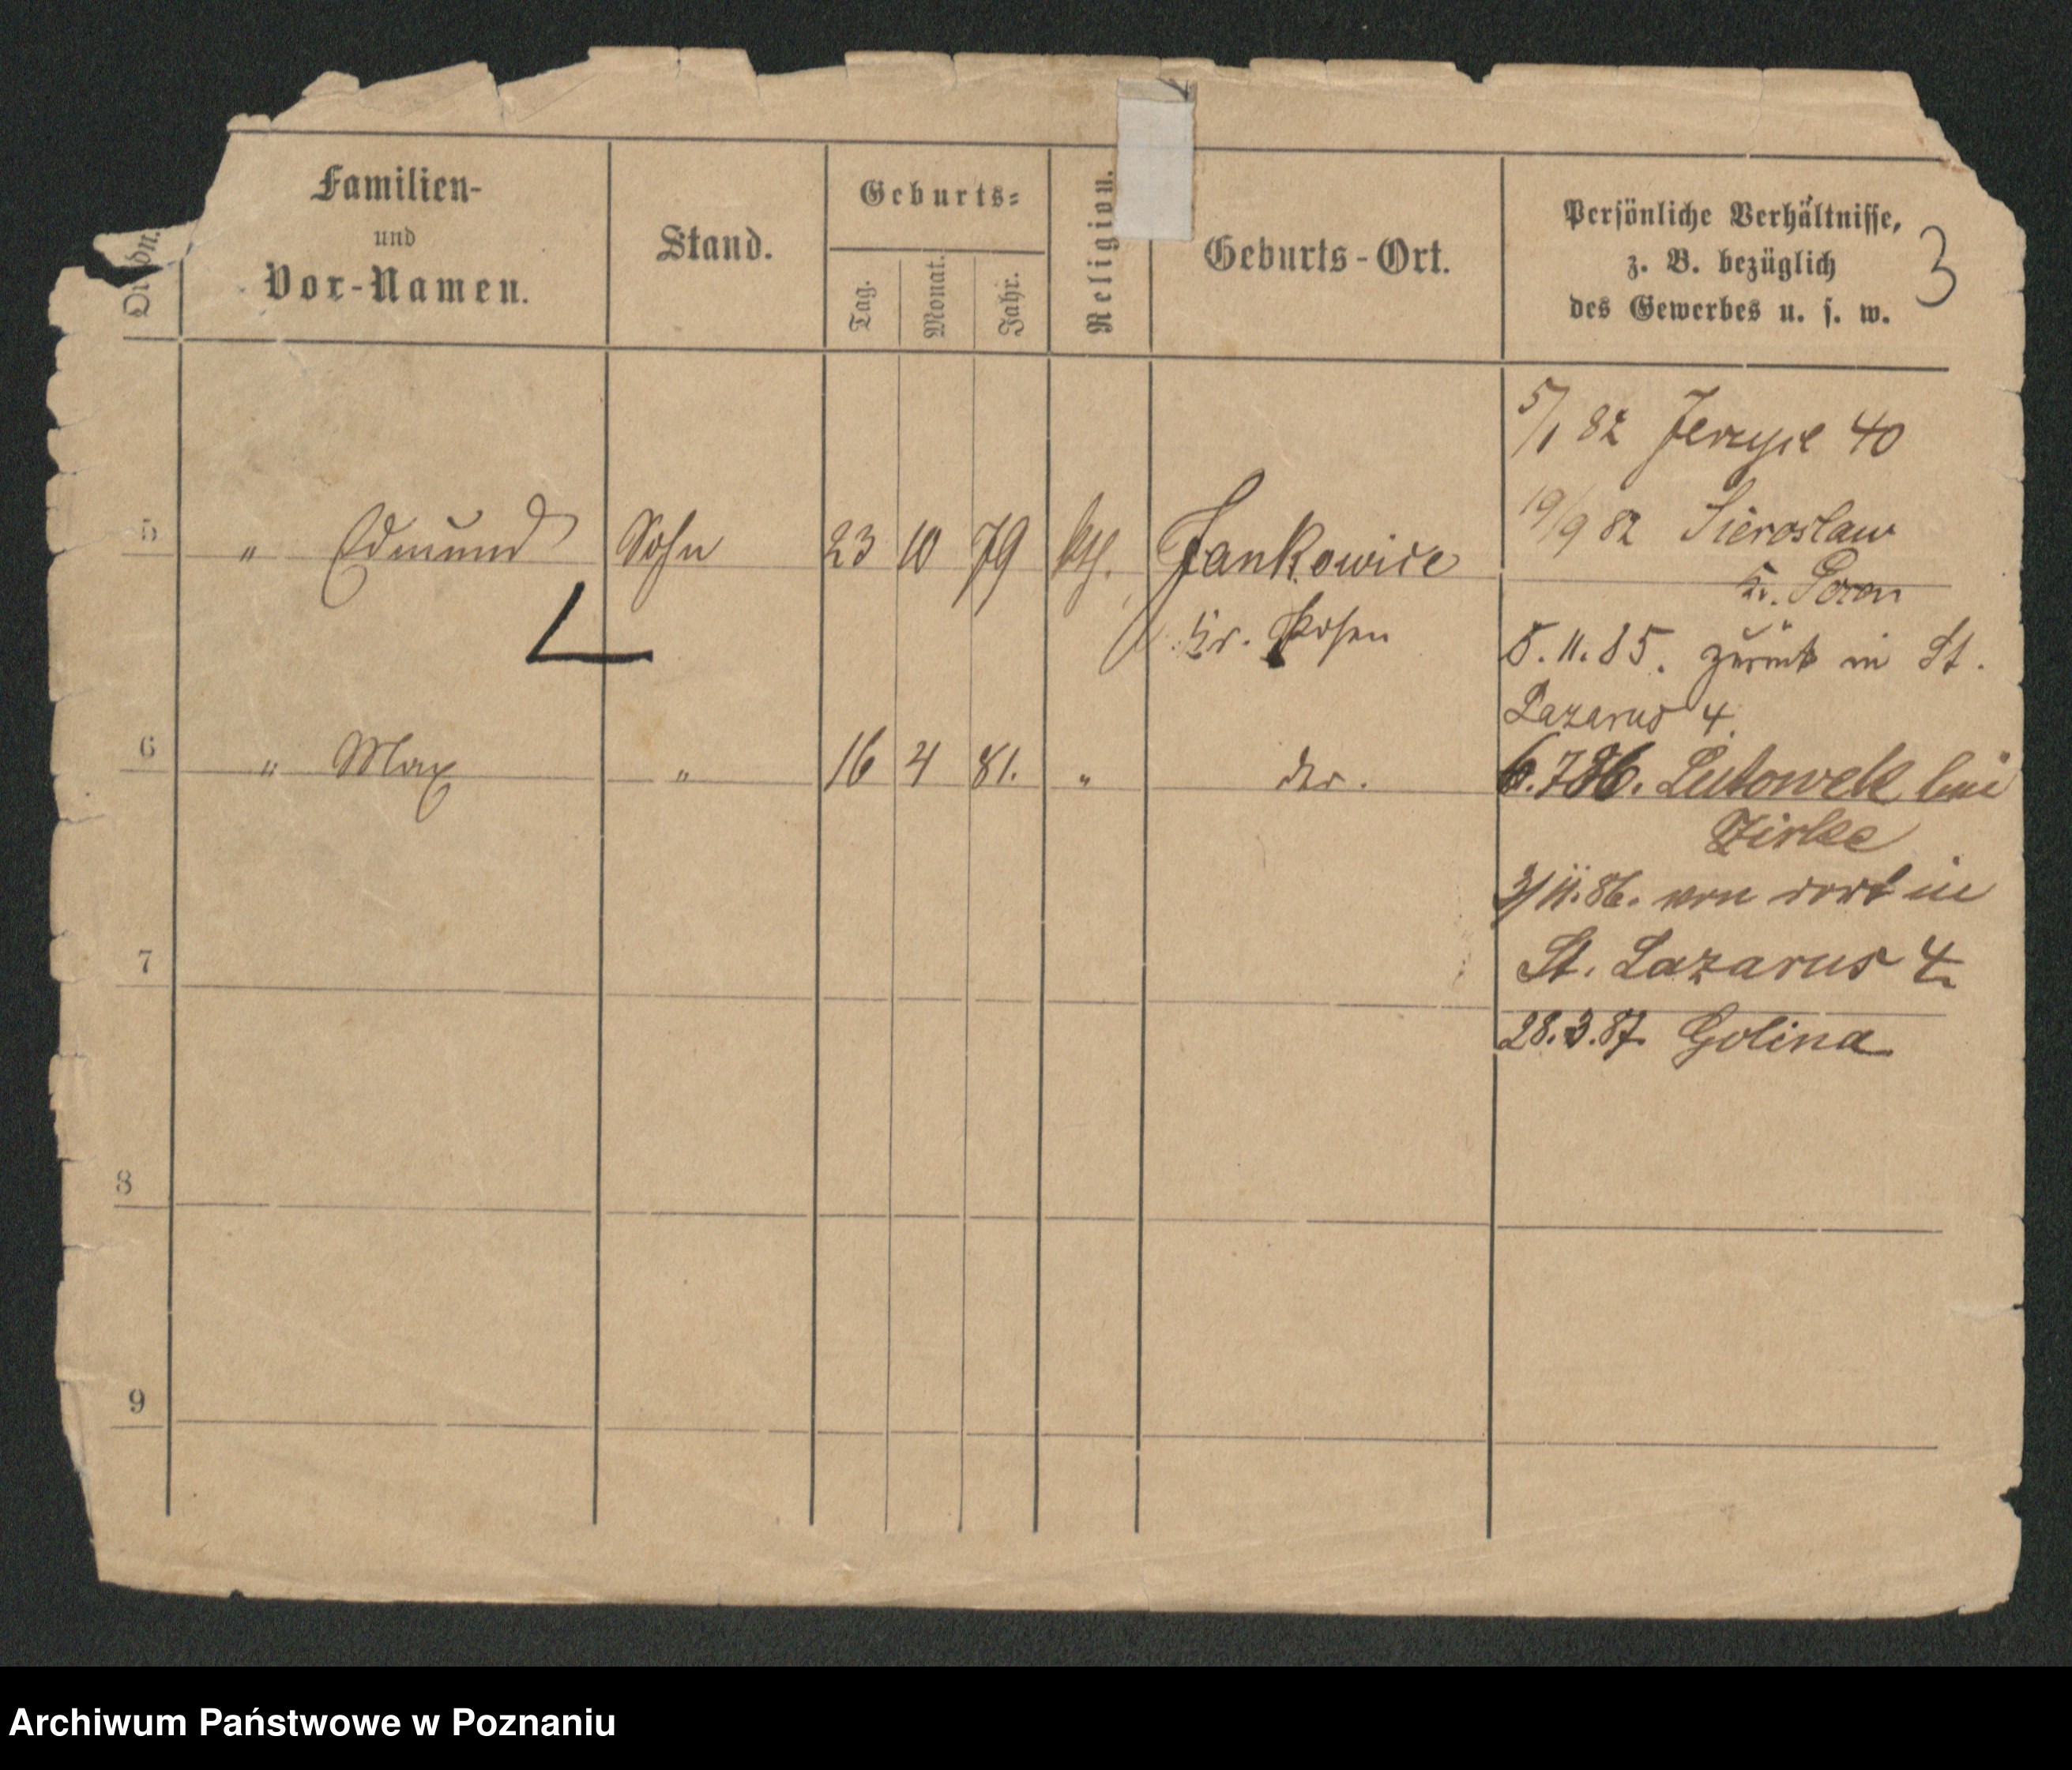 Familien-
und
Vor-Namen.
Stand.
Geburts-
Tag.
Monat.
Jahr.
Religion.
Geburts-Ort.
Persönliche Verhältnisse,
z. B. bezüglich
des Gewerbes u. s. w.
3
5/1 82 Jerzyce 40
19/9 82 Sieroslaw
5 " Edmund Sohn 23 10 79 kth. Jankowice
Kr. Posen
Kr. Posen
5.11.85. zurück in St.
Lazarus 4.
6 " Max " 16 4 81. " der.
6.7 86. Lutowek bei
Zirke
3/11.86. von dort in
St. Lazarus 4.
7
28.3.87. Golina
8
9
Archiwum Państwowe w Poznaniu